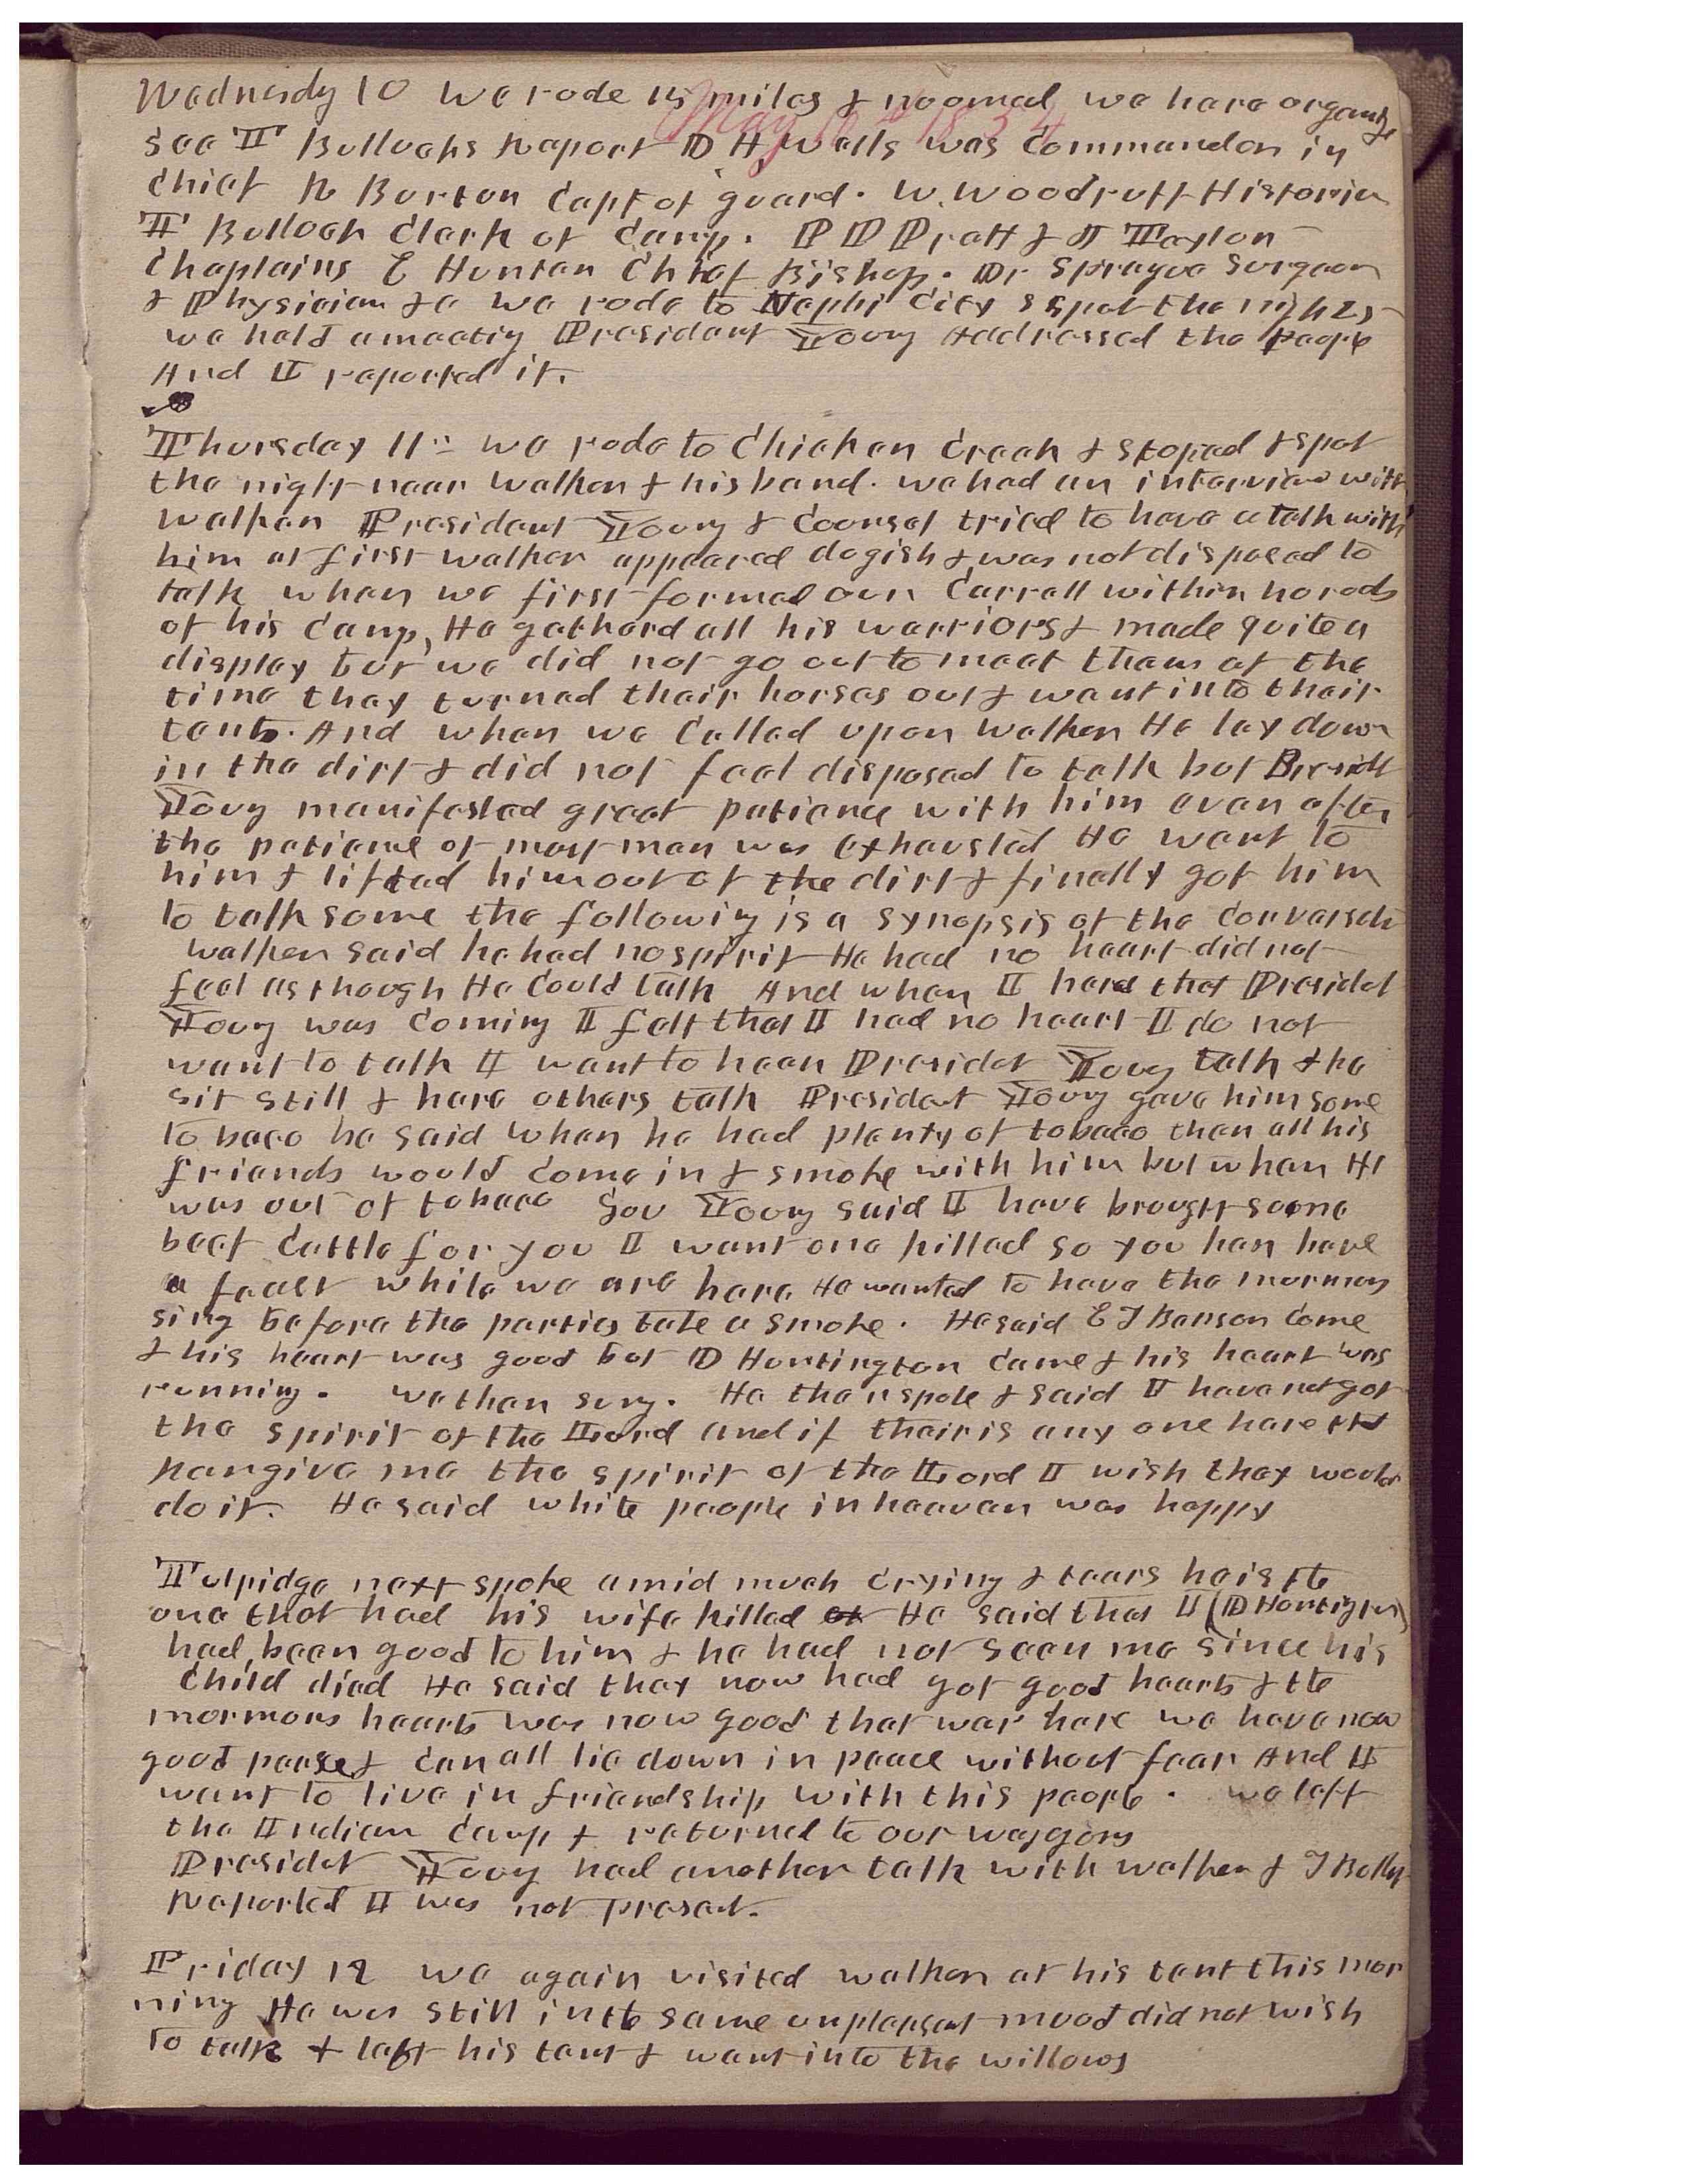 Wednesdy 10 We rode 15 miles & noomed we hare organize
May 10th 1854
see T Bullocks Report D H Wells was Commander in
Chief R Burton Capt of guard. W. Woodruff Historian
T Bullock Clerk of Camp. P P Pratt & J Taylor
Chaplains E Hunter Chief Bishop. Dr Sprague Surgeon
& Physician &c we rode to Nephi City & spet the night
we held a meetig President Young Addressed the People
And I reported it.
Thursday 11th we rode to Chicken Creek & stoped & spet
the night near Walker & his band. we had an interview with
Walker President Young & Counsel tried to have a talk with
him at first walker appeared dogish & was not disposed to
talk when we first formed our Carrall within 40 rods
of his camp, He gatherd all his warriors & made quite a
display but we did not go out to meet them at the
time they turned their horses out & went into their
tents. And when we Called upon Walker He lay down
in the dirt & did not feel disposed to talk but Presidt
Young manifested great patience with him even after
the patience of most men was exhausted He went to
him & lifted him out of the dirt & finally got him
to talk some the following is a synopsis of the Conversati
Walker said he had no spirit He had no heart did not
feel as though He Could talk And when I herd that Presidet
Young was Coming I felt that I had no heart I do not
want to talk I want to hear Presidet Young talk & he
sit still & hare others talk President Young gave him some
tobaco he said when he had plenty of tobaco then all his
friends would come in & smoke with him but when He
was out of tobaco Gov Young said I have brought some
beef cattle for you I want one killed so you kan have
a feast while we are here He wanted to have the mormons
sing before the parties take a smoke. He said E T Benson Come
& his heart was good but D Huntington Came & his heart was
running. we then sung. He then spoke & said I have not got
the spirit of the Lord and if their is any one here tht
kan give me the spirit of the Lord I wish they would
do it. He said white people in heaven was happy
Tulpidge next spoke amid much crying & tears he is the
one that had his wife killed He said that I (D Huntigton)
had been good to him & he had not seen me since his
Child died He said they now had got good hearts & the
mormons hearts was now good that war here we have now
good peace & Can all lie down in peace without fear And I
want to live in friendship with this people. we left
the Indian Camp & returned to our waggons
Presidet Young had another talk with Walker & T Bullk
Reported I was not present.
Friday 12 We again visited walker at his tent this mor
ning He was still in the same unpleasat mood did not wish
to talk & left his tent & went into the willows